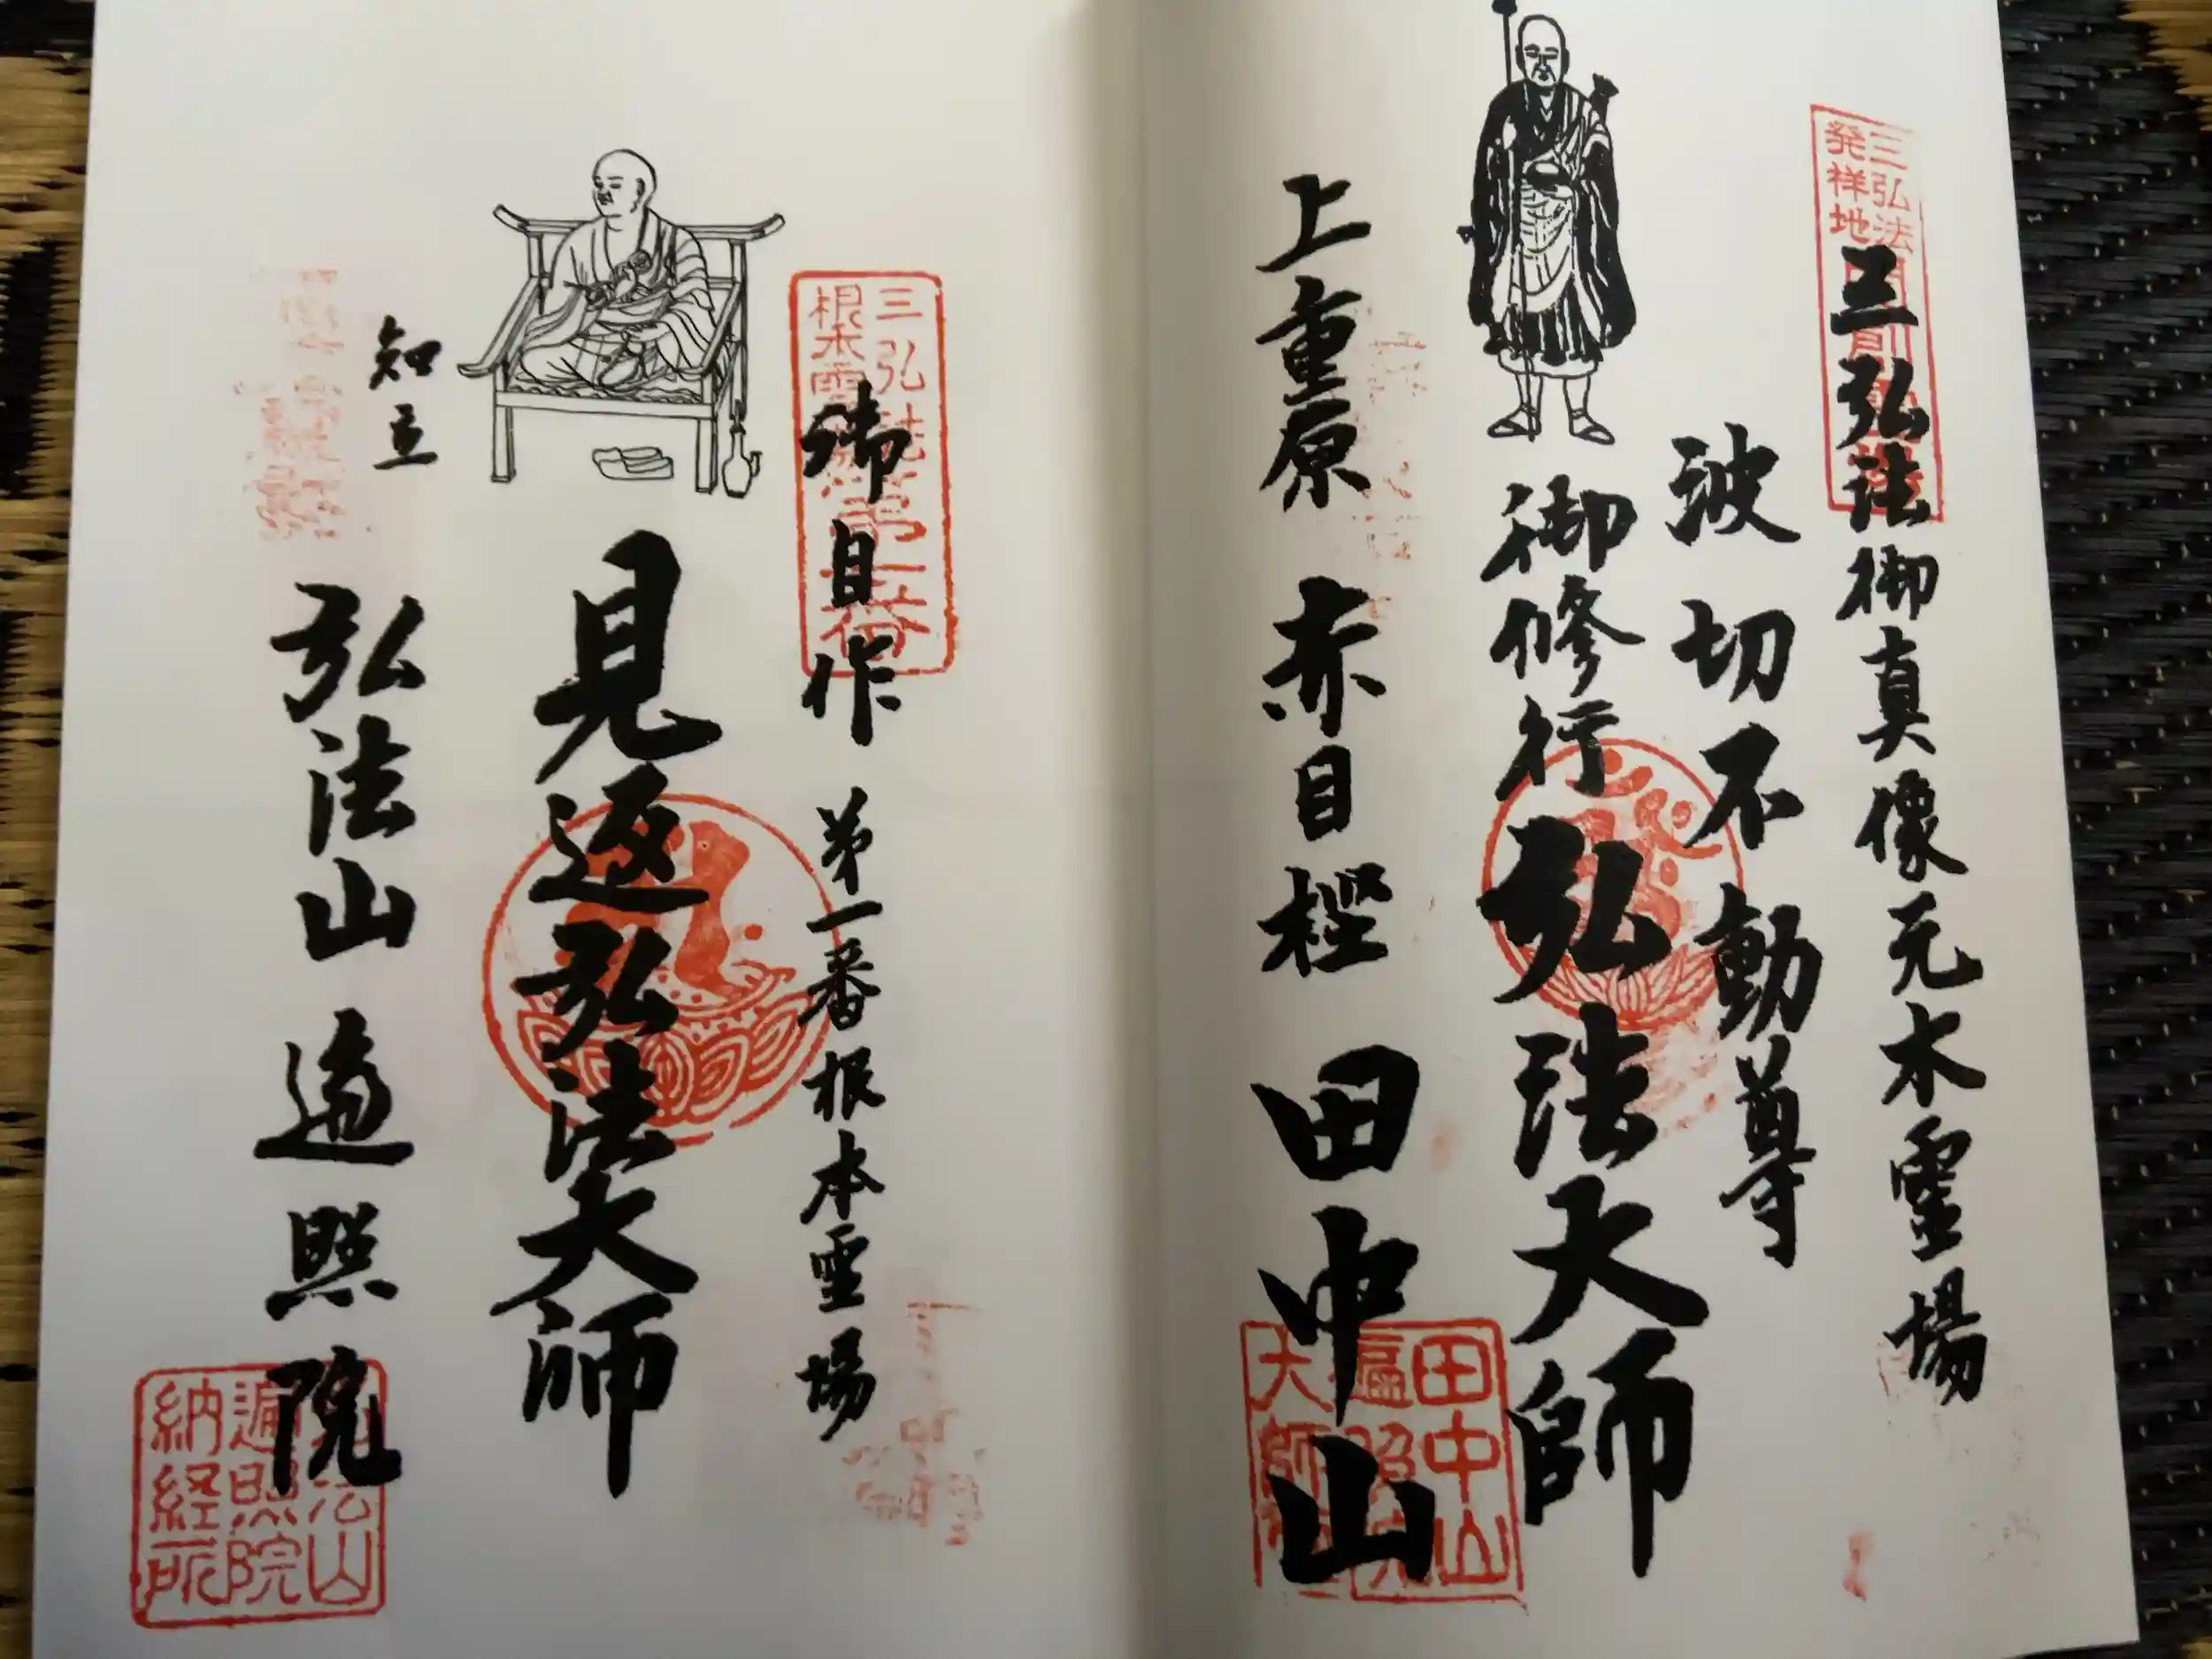 三弘法
発祥地
三弘法御真像元木霊場
波切不動尊
御修行弘法大師
上重原 赤目樫 田中山
田中山
遍照
大師
三弘法
根本霊
第一番
御自作 第一番根本霊場
見返弘法大師
知立
弘法山 遍照院
弘法山
遍照院
納経所